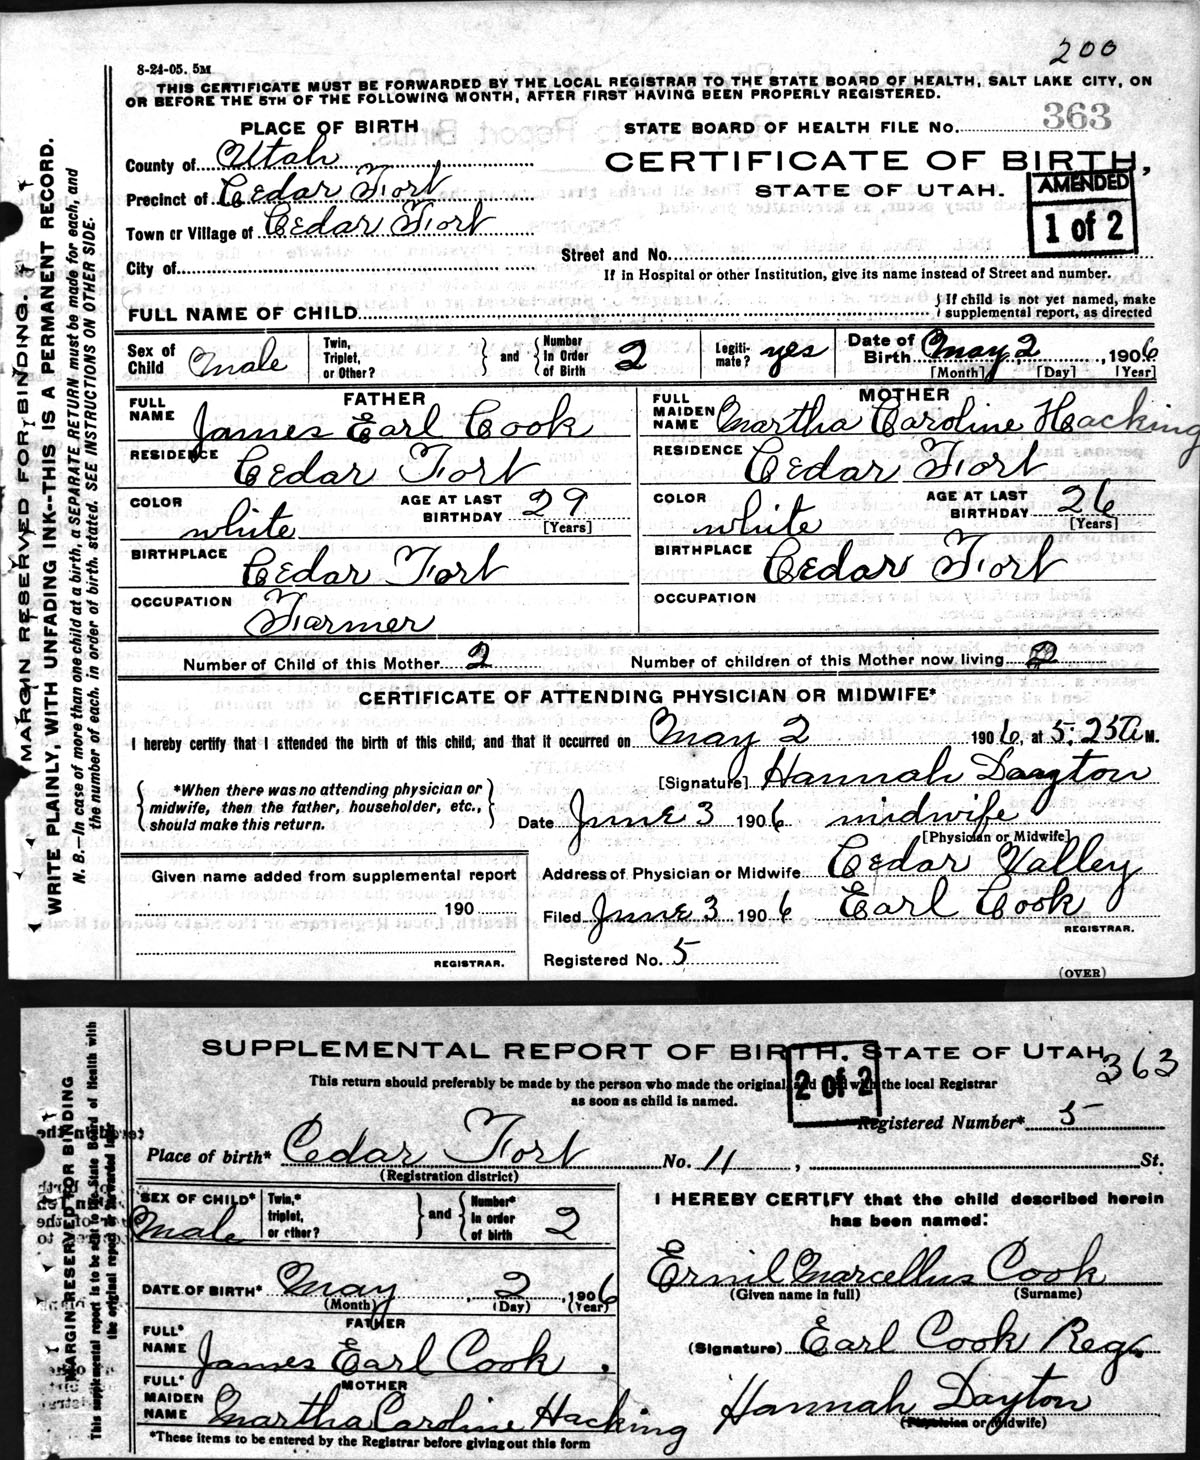 200
8-24-05. 5M
THIS CERTIFICATE MUST BE FORWARDED BY THE LOCAL REGISTRAR TO THE STATE BOARD OF HEALTH, SALT LAKE CITY, ON
OR BEFORE THE 5TH OF THE FOLLOWING MONTH, AFTER FIRST HAVING BEEN PROPERLY REGISTERED.
PLACE OF BIRTH
STATE BOARD OF HEALTH FILE No. 363
County of Utah
CERTIFICATE OF BIRTH,
Precinct of Cedar Fort
STATE OF UTAH.
AMENDED
1 of 2
Town or Village of Cedar Fort
Street and No.
City of
If in Hospital or other Institution, give its name instead of Street and number.
FULL NAME OF CHILD
} If child is not yet named, make
supplemental report, as directed
Sex of Child Male
Twin, Triplet, or Other?
} and { Number in Order of Birth 2
Legitimate? yes
Date of Birth May 2, 1906
[Month] [Day] [Year]
FATHER
MOTHER
FULL NAME James Earl Cook
FULL MAIDEN NAME Martha Caroline Hacking
RESIDENCE Cedar Fort
RESIDENCE Cedar Fort
COLOR white
AGE AT LAST BIRTHDAY 29
[Years]
COLOR white
AGE AT LAST BIRTHDAY 26
[Years]
BIRTHPLACE Cedar Fort
BIRTHPLACE Cedar Fort
OCCUPATION Farmer
OCCUPATION
Number of Child of this Mother 2
Number of children of this Mother now living 2
CERTIFICATE OF ATTENDING PHYSICIAN OR MIDWIFE*
I hereby certify that I attended the birth of this child, and that it occurred on May 2 1906, at 5:25 A M.
{ *When there was no attending physician or
midwife, then the father, householder, etc.,
should make this return. }
[Signature] Hannah Dayton
Date June 3 1906 midwife
[Physician or Midwife]
Given name added from supplemental report
190
REGISTRAR.
Address of Physician or Midwife Cedar Valley
Filed June 3 1906 Earl Cook
REGISTRAR.
Registered No. 5
(OVER)
MARGIN RESERVED FOR BINDING.
WRITE PLAINLY, WITH UNFADING INK--THIS IS A PERMANENT RECORD.
N. B.—In case of more than one child at a birth, a SEPARATE RETURN must be made for each, and
the number of each, in order of birth, stated. SEE INSTRUCTIONS ON OTHER SIDE.
SUPPLEMENTAL REPORT OF BIRTH. STATE OF UTAH
363
This return should preferably be made by the person who made the original, and with the local Registrar
as soon as child is named.
2 of 2
Registered Number* 5
Place of birth* Cedar Fort No. 11, St.
(Registration district)
SEX OF CHILD* Male
Twin,* triplet, or other?
} and { Number* in order of birth 2
I HEREBY CERTIFY that the child described herein
has been named:
DATE OF BIRTH* May 2, 1906
(Month) (Day) (Year)
Ernil Marcellus Cook
(Given name in full) (Surname)
FATHER
FULL* NAME James Earl Cook.
(Signature) Earl Cook Reg.
MOTHER
FULL* MAIDEN NAME Martha Caroline Hacking
Hannah Dayton
(Physician or Midwife)
*These items to be entered by the Registrar before giving out this form
MARGIN RESERVED FOR BINDING
This supplemental report is to be sent to the State Board of Health with
the original report